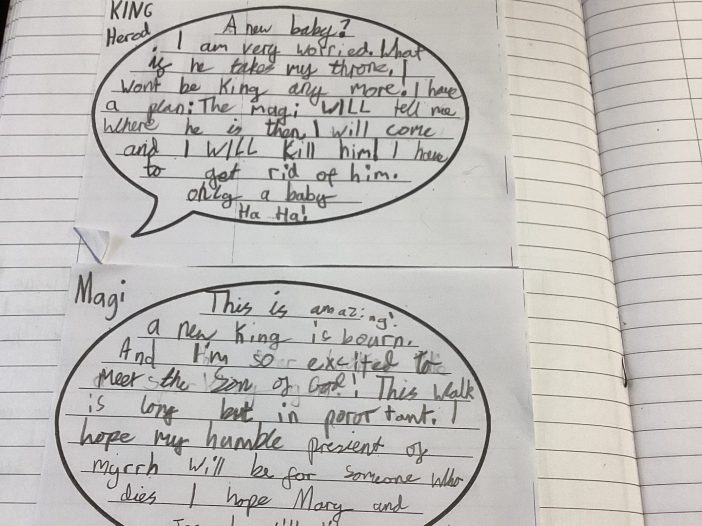 KING
Herod
A new baby?
I am very worried. What
if he takes my throne. I
wont be King any more. I have
a plan: The magi WILL tell me
Where he is then I will come
and I WILL Kill him! I have
to get rid of him.
only a baby
Ha Ha!
Magi
This is amazing!
a new King is bourn.
And I'm so excited to
meet the Son of God! This walk
is long but in poror tant. I
hope my humble presient of
myrrh will be for someone who
dies I hope Mary and